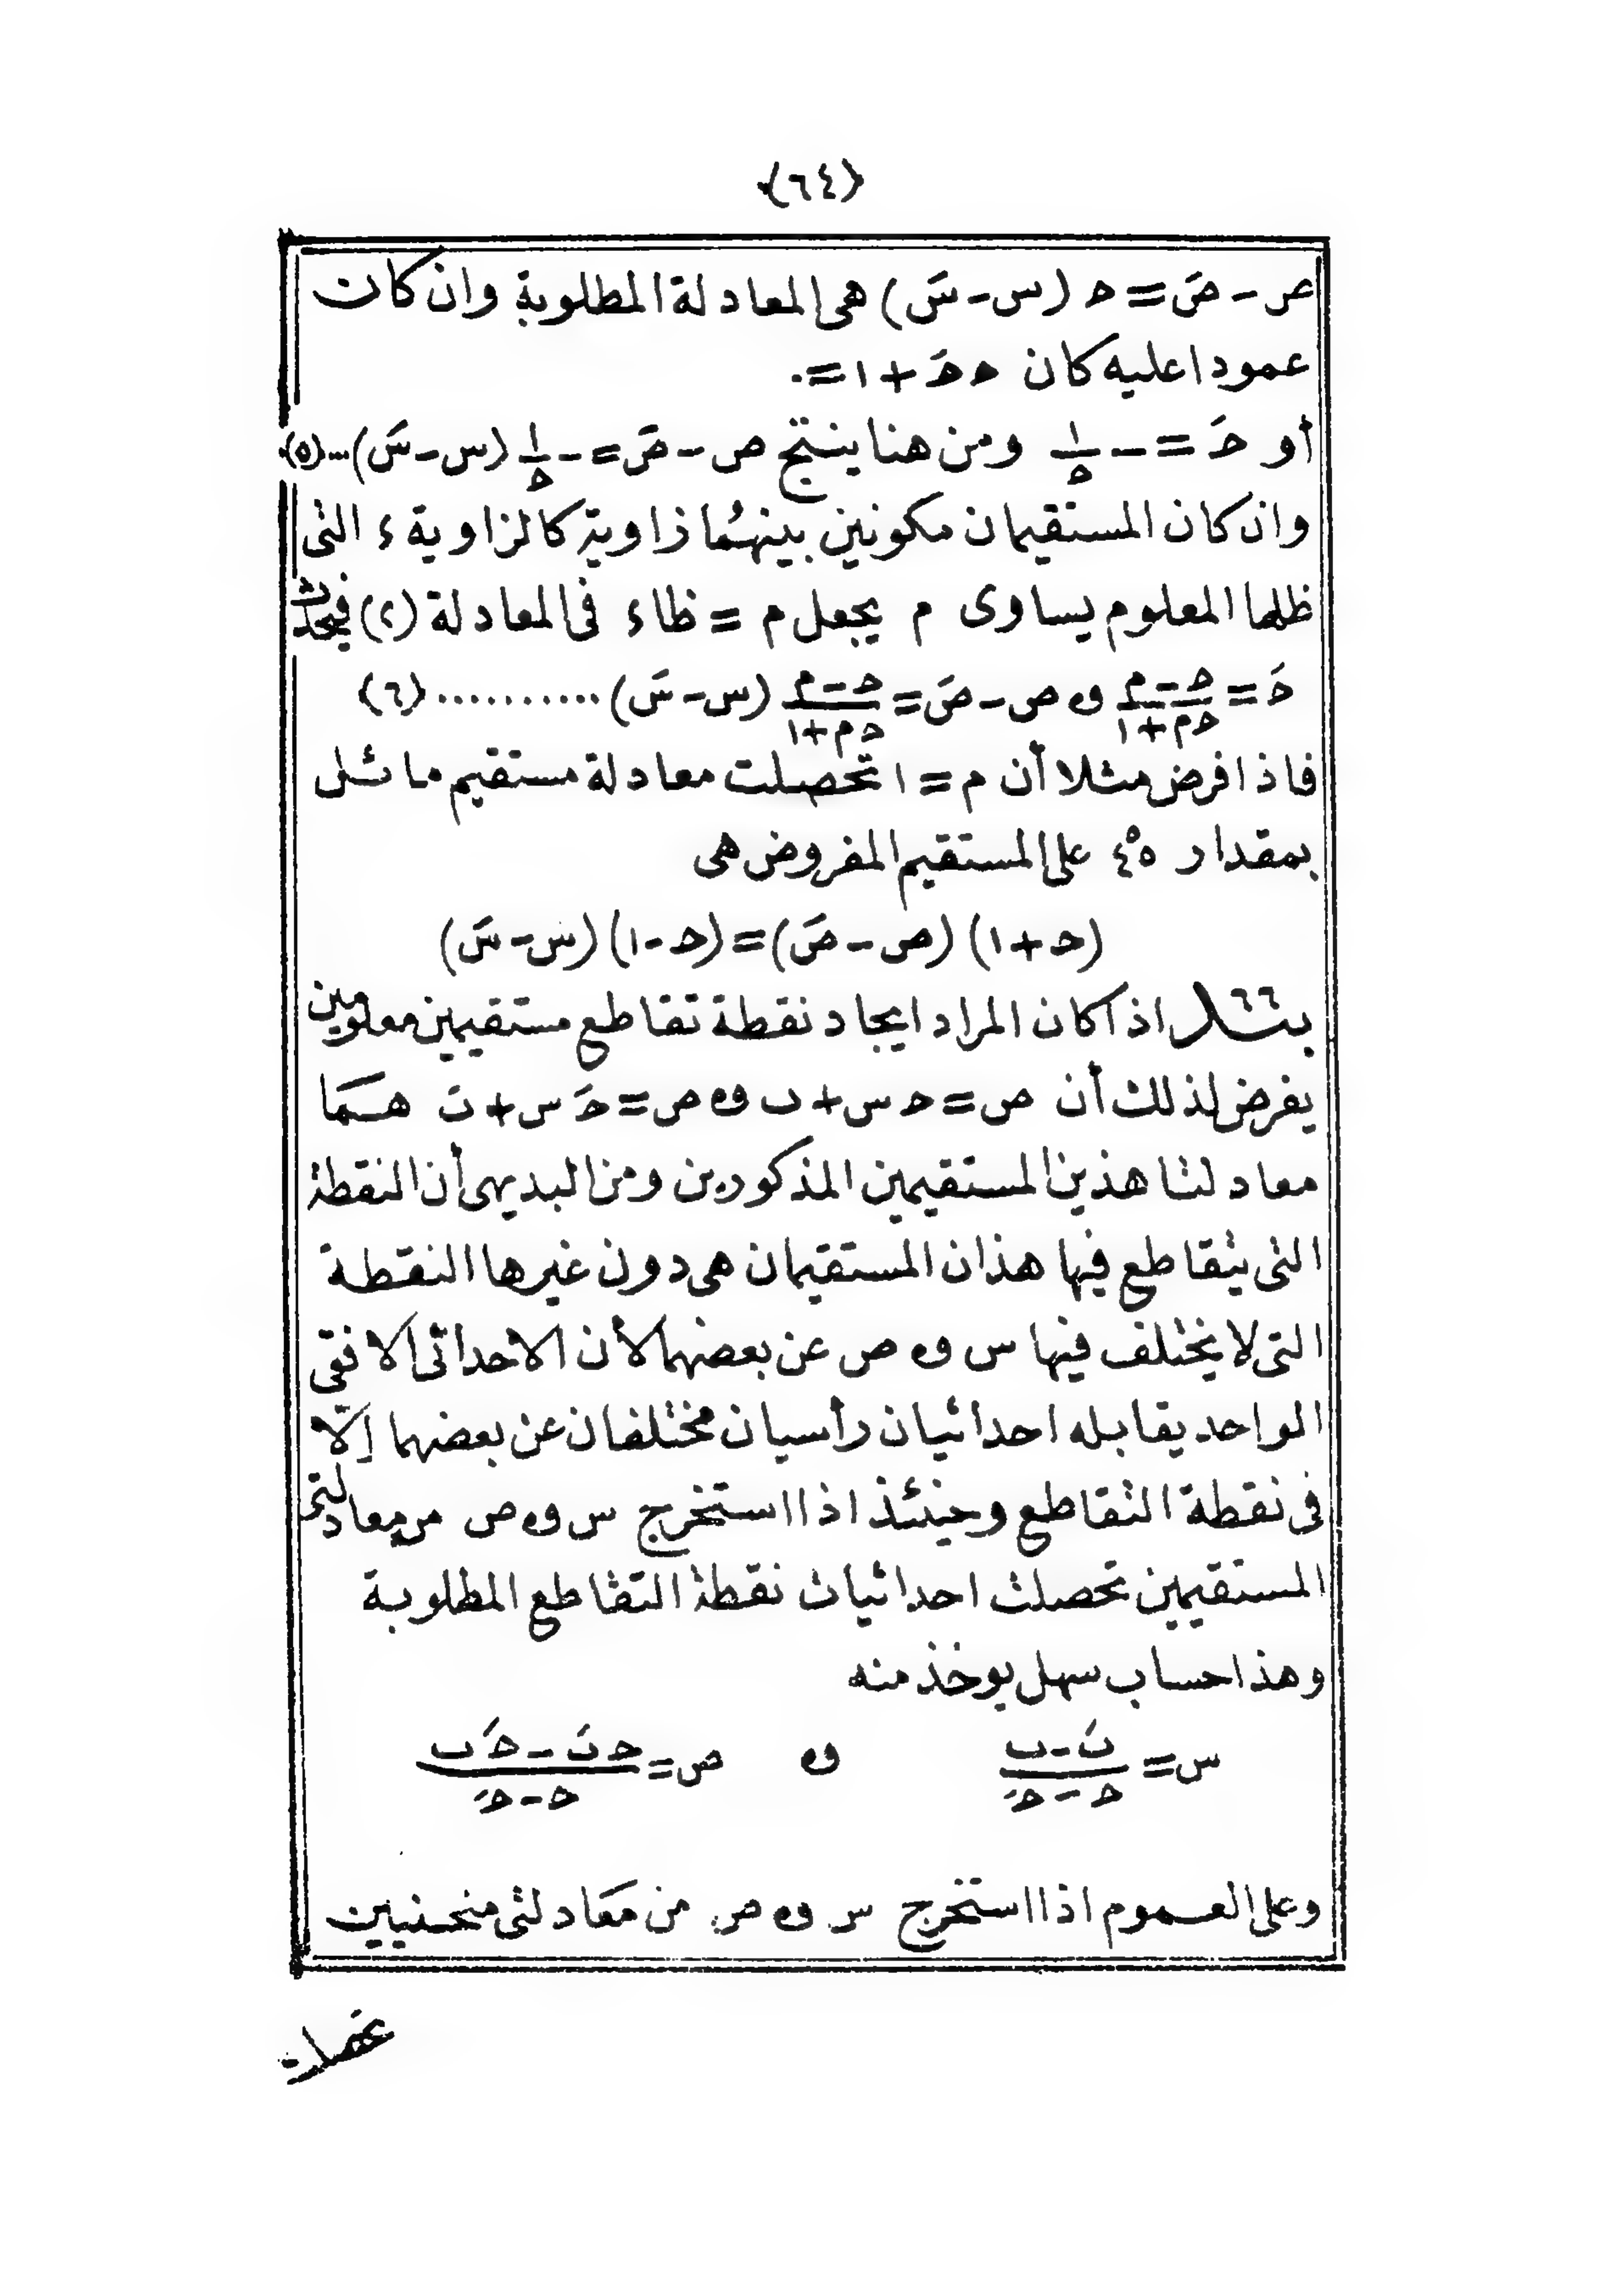 (٦٤)
ص - صَ = حـ (س - سَ) هى المعادلة المطلوبة وان كان
عمودا عليه كان حـ حـَ + ١ = ٠
أو حـَ = - ١/حـ ومن هنا ينتج ص - صَ = - ١/حـ (س - سَ) ... (٥)
وان كان المستقيمان مكونين بينهما زاوية كالزاوية ء التى
ظلها المعلوم يساوى م يجعل م = ظاء فى المعادلة (٢) فيحدث
حـَ = (حـ - م)/(حـ م + ١) و ص - صَ = (حـ - م)/(حـ م + ١) (س - سَ) .......... (٦)
فاذا فرض مثلا أن م = ١ تحصلت معادلة مستقيم مائل
بمقدار ٤٥° على المستقيم المفروض هى
(حـ + ١) (ص - صَ) = (حـ - ١) (س - سَ)
بند ٦٦ اذا كان المراد ايجاد نقطة تقاطع مستقيمين معلومين
يفرض لذلك أن ص = حـ س + ب و ص = حـَ س + بَ هما
معادلتا هذين المستقيمين المذكورين ومن البديهى أن النقطة
التى يتقاطع فيها هذان المستقيمان هى دون غيرها النقطة
التى لا يختلف فيها س و ص عن بعضهما لأن الاحداثى الافقى
الواحد يقابله احداثيان رأسيان مختلفان عن بعضهما إلّا
فى نقطة التقاطع وحينئذ اذا استخرج س و ص من معادلتى
المستقيمين تحصلت احداثيات نقطة التقاطع المطلوبة
وهذا حساب سهل يوخذ منه
س = (بَ - ب)/(حـ - حـَ) و ص = (حـ بَ - حـَ ب)/(حـ - حـَ)
وعلى العموم اذا استخرج س و ص من معادلتى منحنيين
تحصلت